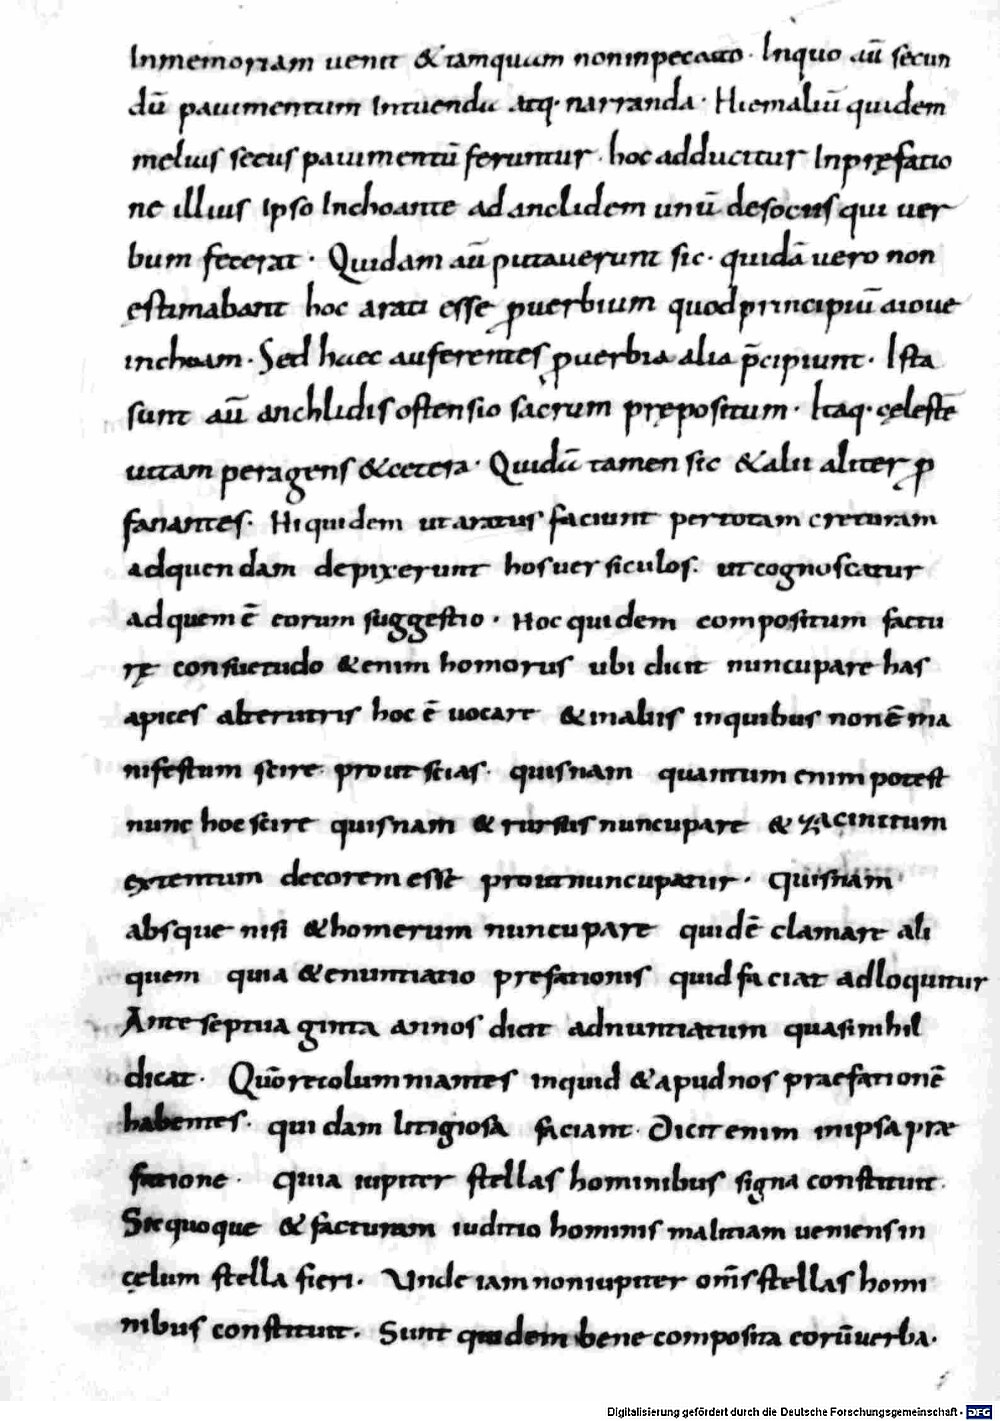 Inmemoriam uenit & tamquam noninpeccato. Inquo aū secun
dū pauimentum Intuenda atq· narranda· Hiemaliū quidem
melius secus pauimentū feruntur· hoc adducitur Inpręfatio
ne illius Ipso Inchoante ad anclidem unū desocius qui uer
bum fecerat· Quidam aū putauerunt sic· quidā uero non
ęstimabant hoc arati esse ꝓuerbium quod principiū aioue
inchoam· Sed haec auferentes ꝓuerbia alia p̄cipiunt· Ista
sunt aū anchlidis ostensio sacrum prępositum· Itaq· cęlestē
uitam peragens &cetera· Quidā tamen sic &alii aliter ꝓ
fanantes· Hi quidem ut aratus faciunt pertotam creturam
adquendam depixerunt hos uersiculos· ut cognoscatur
ad quem ē eorum suggestio· Hoc quidem compositum factu
rę consuetudo &enim homorus ubi dicit nuncupare has
apices alterutris hoc ē uocare &inaliis inquibus nonē ma
nifestum scire prout scias· quisnam quantum enim potest
nunc hoc scire quisnam & rursus nuncupare & zacinitum
extentum decorem esse prout nuncupatur· quisnam
absque nisi &homerum nuncupare quidē clamare ali
quem quia &enuntiatio prefationis quid faciat adloquitur
Ante septuaginta annos dicit adnuntiatum quasi nihil
dicat· Quō retolummantes inquid &apud nos praefationē
habentes· quidam litigiosa faciant· Dicit enim inipsa præ
fatione· quia iupiter stellas hominibus signa constituit·
Sic quoque & facturam iuditio hominis malitiam ueniens in
cęlum stella fieri· Unde iam noniupiter om̄s stellas homi
nibus constituit· Sunt quidem bene composita corūuerba·
Digitalisierung gefördert durch die Deutsche Forschungsgemeinschaft - DFG